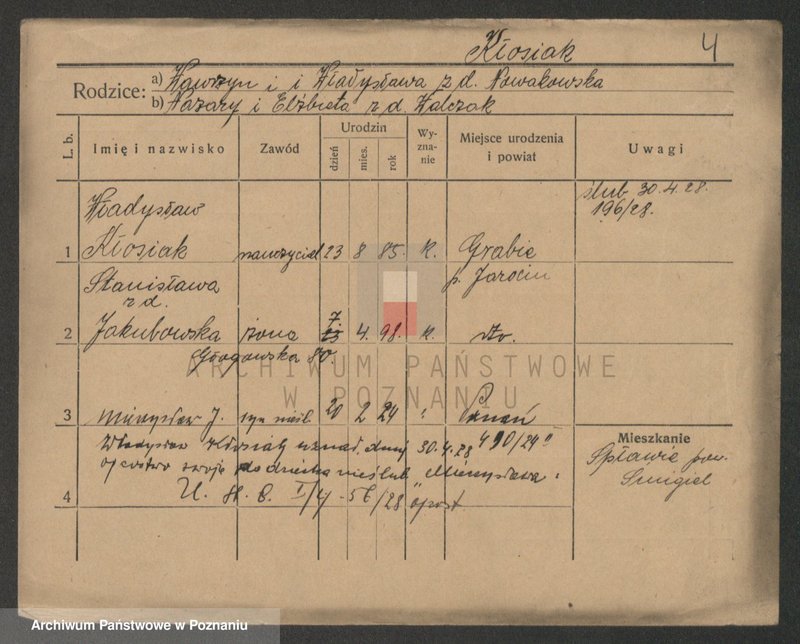 Kłosiak 4
Rodzice: a) Wawrzyn i i Władysława z d. Nowakowska
b) Nazary i Elżbieta z d. Walczak
L. b. Imię i nazwisko Zawód Urodzin dzień mies. rok Wy-zna-nie Miejsce urodzenia i powiat Uwagi
ślub 30.4.28.
196/28.
Władysław
1 Kłosiak nauczyciel 23 8 85. k. Grabie
p. Jarocin
Stanisława
z d.
7
2 Jakubowska żona 4. 98. k. dto.
Głogowska 80
ARCHIWUM PAŃSTWOWE
W POZNANIU
3 Mieczysław J. syn nieśl. 20 2 24 " Poznań
Władysław Kłosiak uznał dnia 30.4.28 490/24"
ojcostwo swoje do dziecka nieślub. "Mieczysława"
4 U. St. C. I/4 - 56/28
Mieszkanie
Spławie pow.
Śmigiel
Archiwum Państwowe w Poznaniu